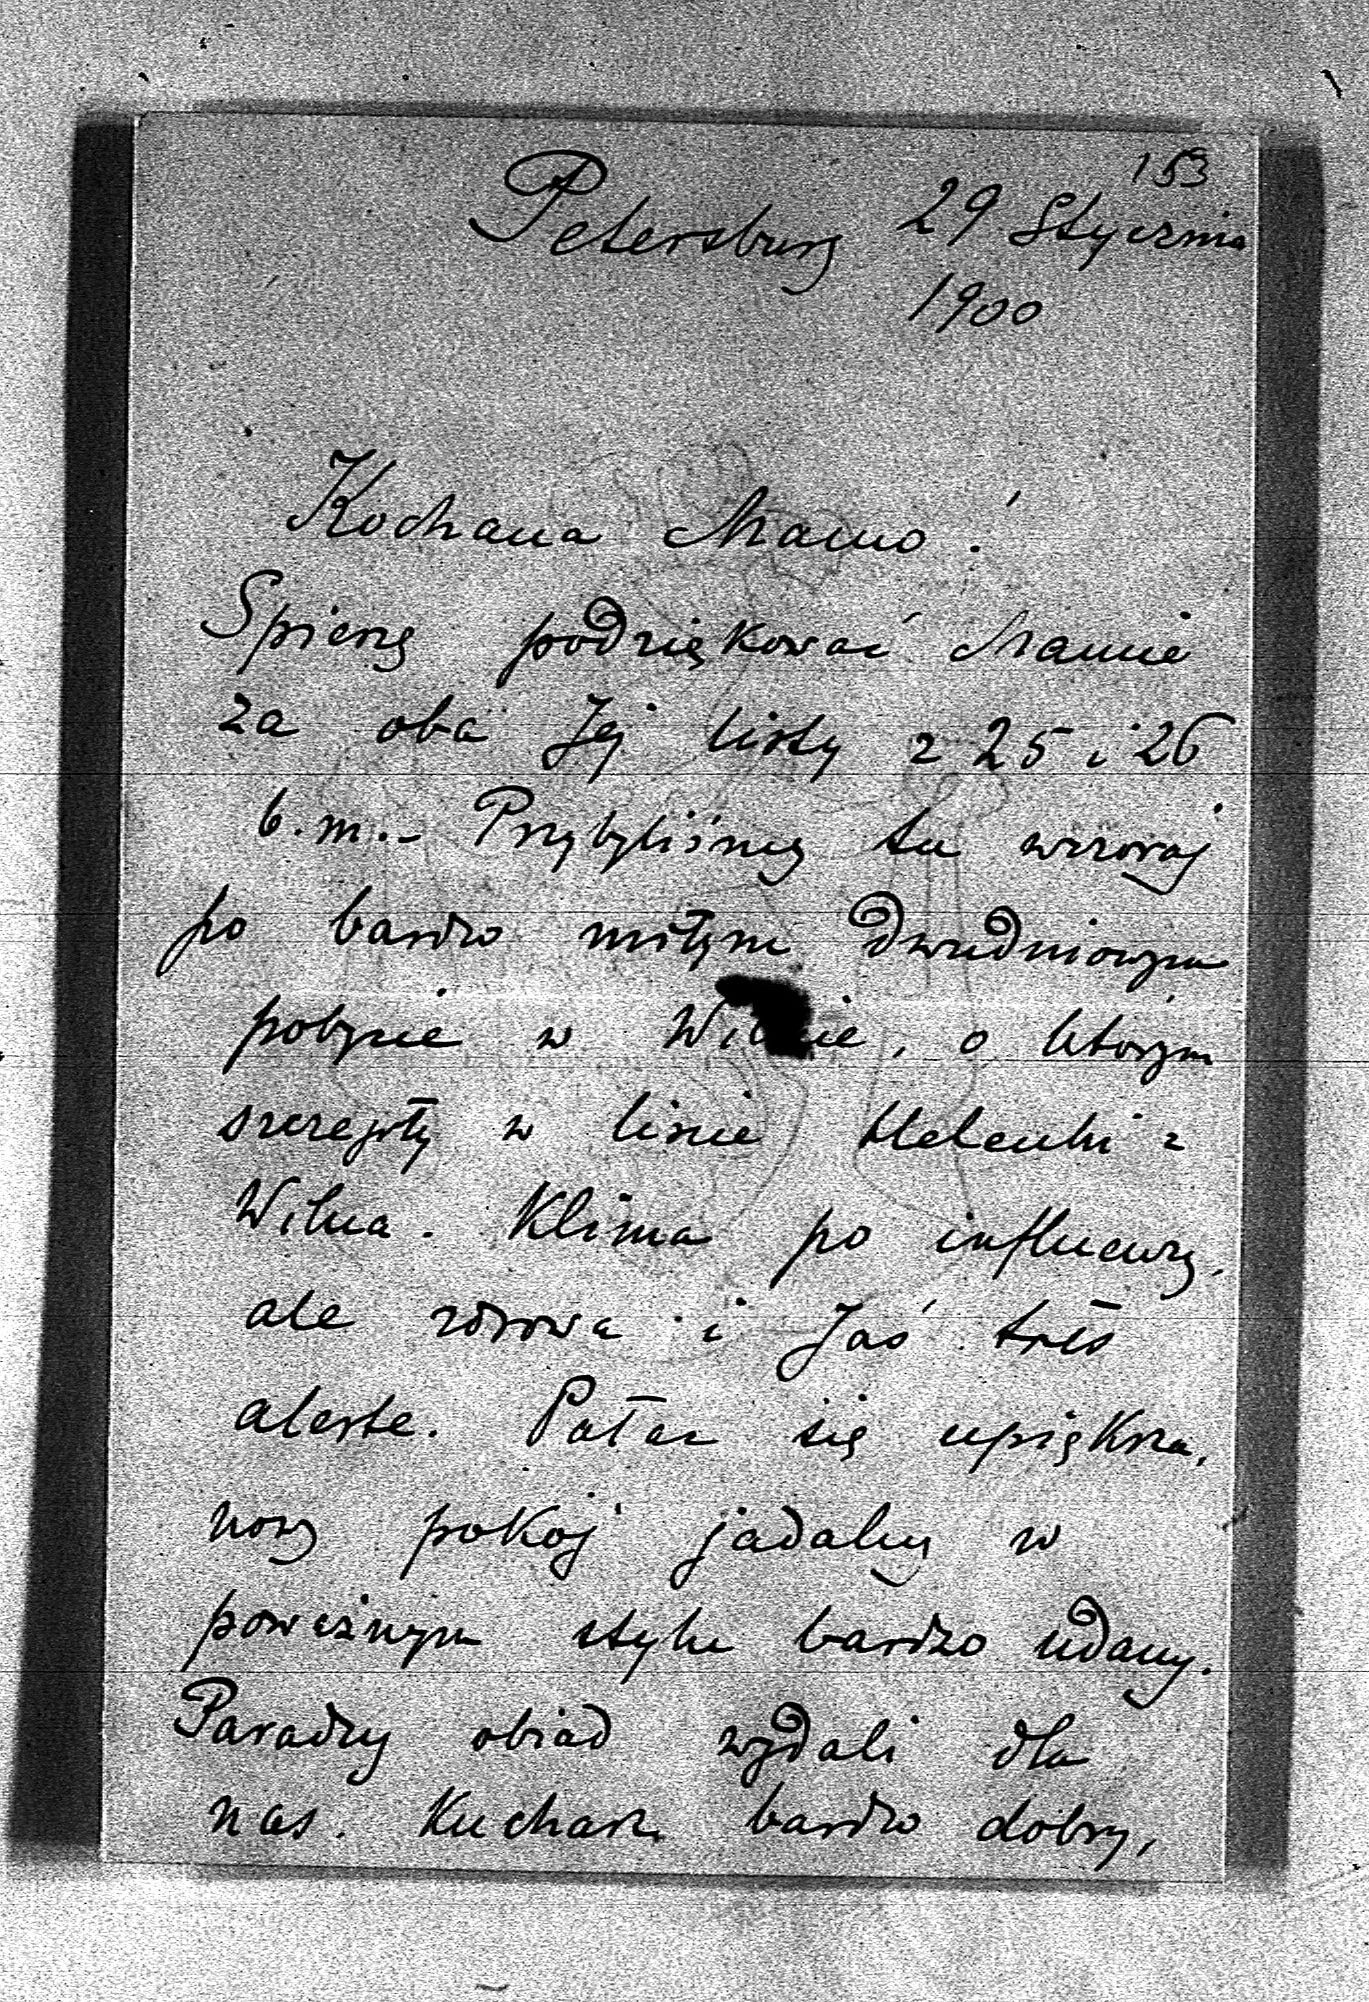 153
Petersburg 29 Stycznia
1900
Kochana Mamo!
Spieszę podziękować Mamie
za oba Jej listy z 25 i 26
b.m.- Przybyliśmy tu wczoraj
po bardzo miłym dwudniowym
pobycie w Wilnie, o którym
szczegóły w liście Helenki z
Wilna. Klima po influenzy,
ale zdrowa i Jaś très
alerte. Pałac się upiększa,
nowy pokój jadalny w
poważnym stylu bardzo udany.
Paradny obiad wydali dla
nas. Kucharz bardzo dobry,